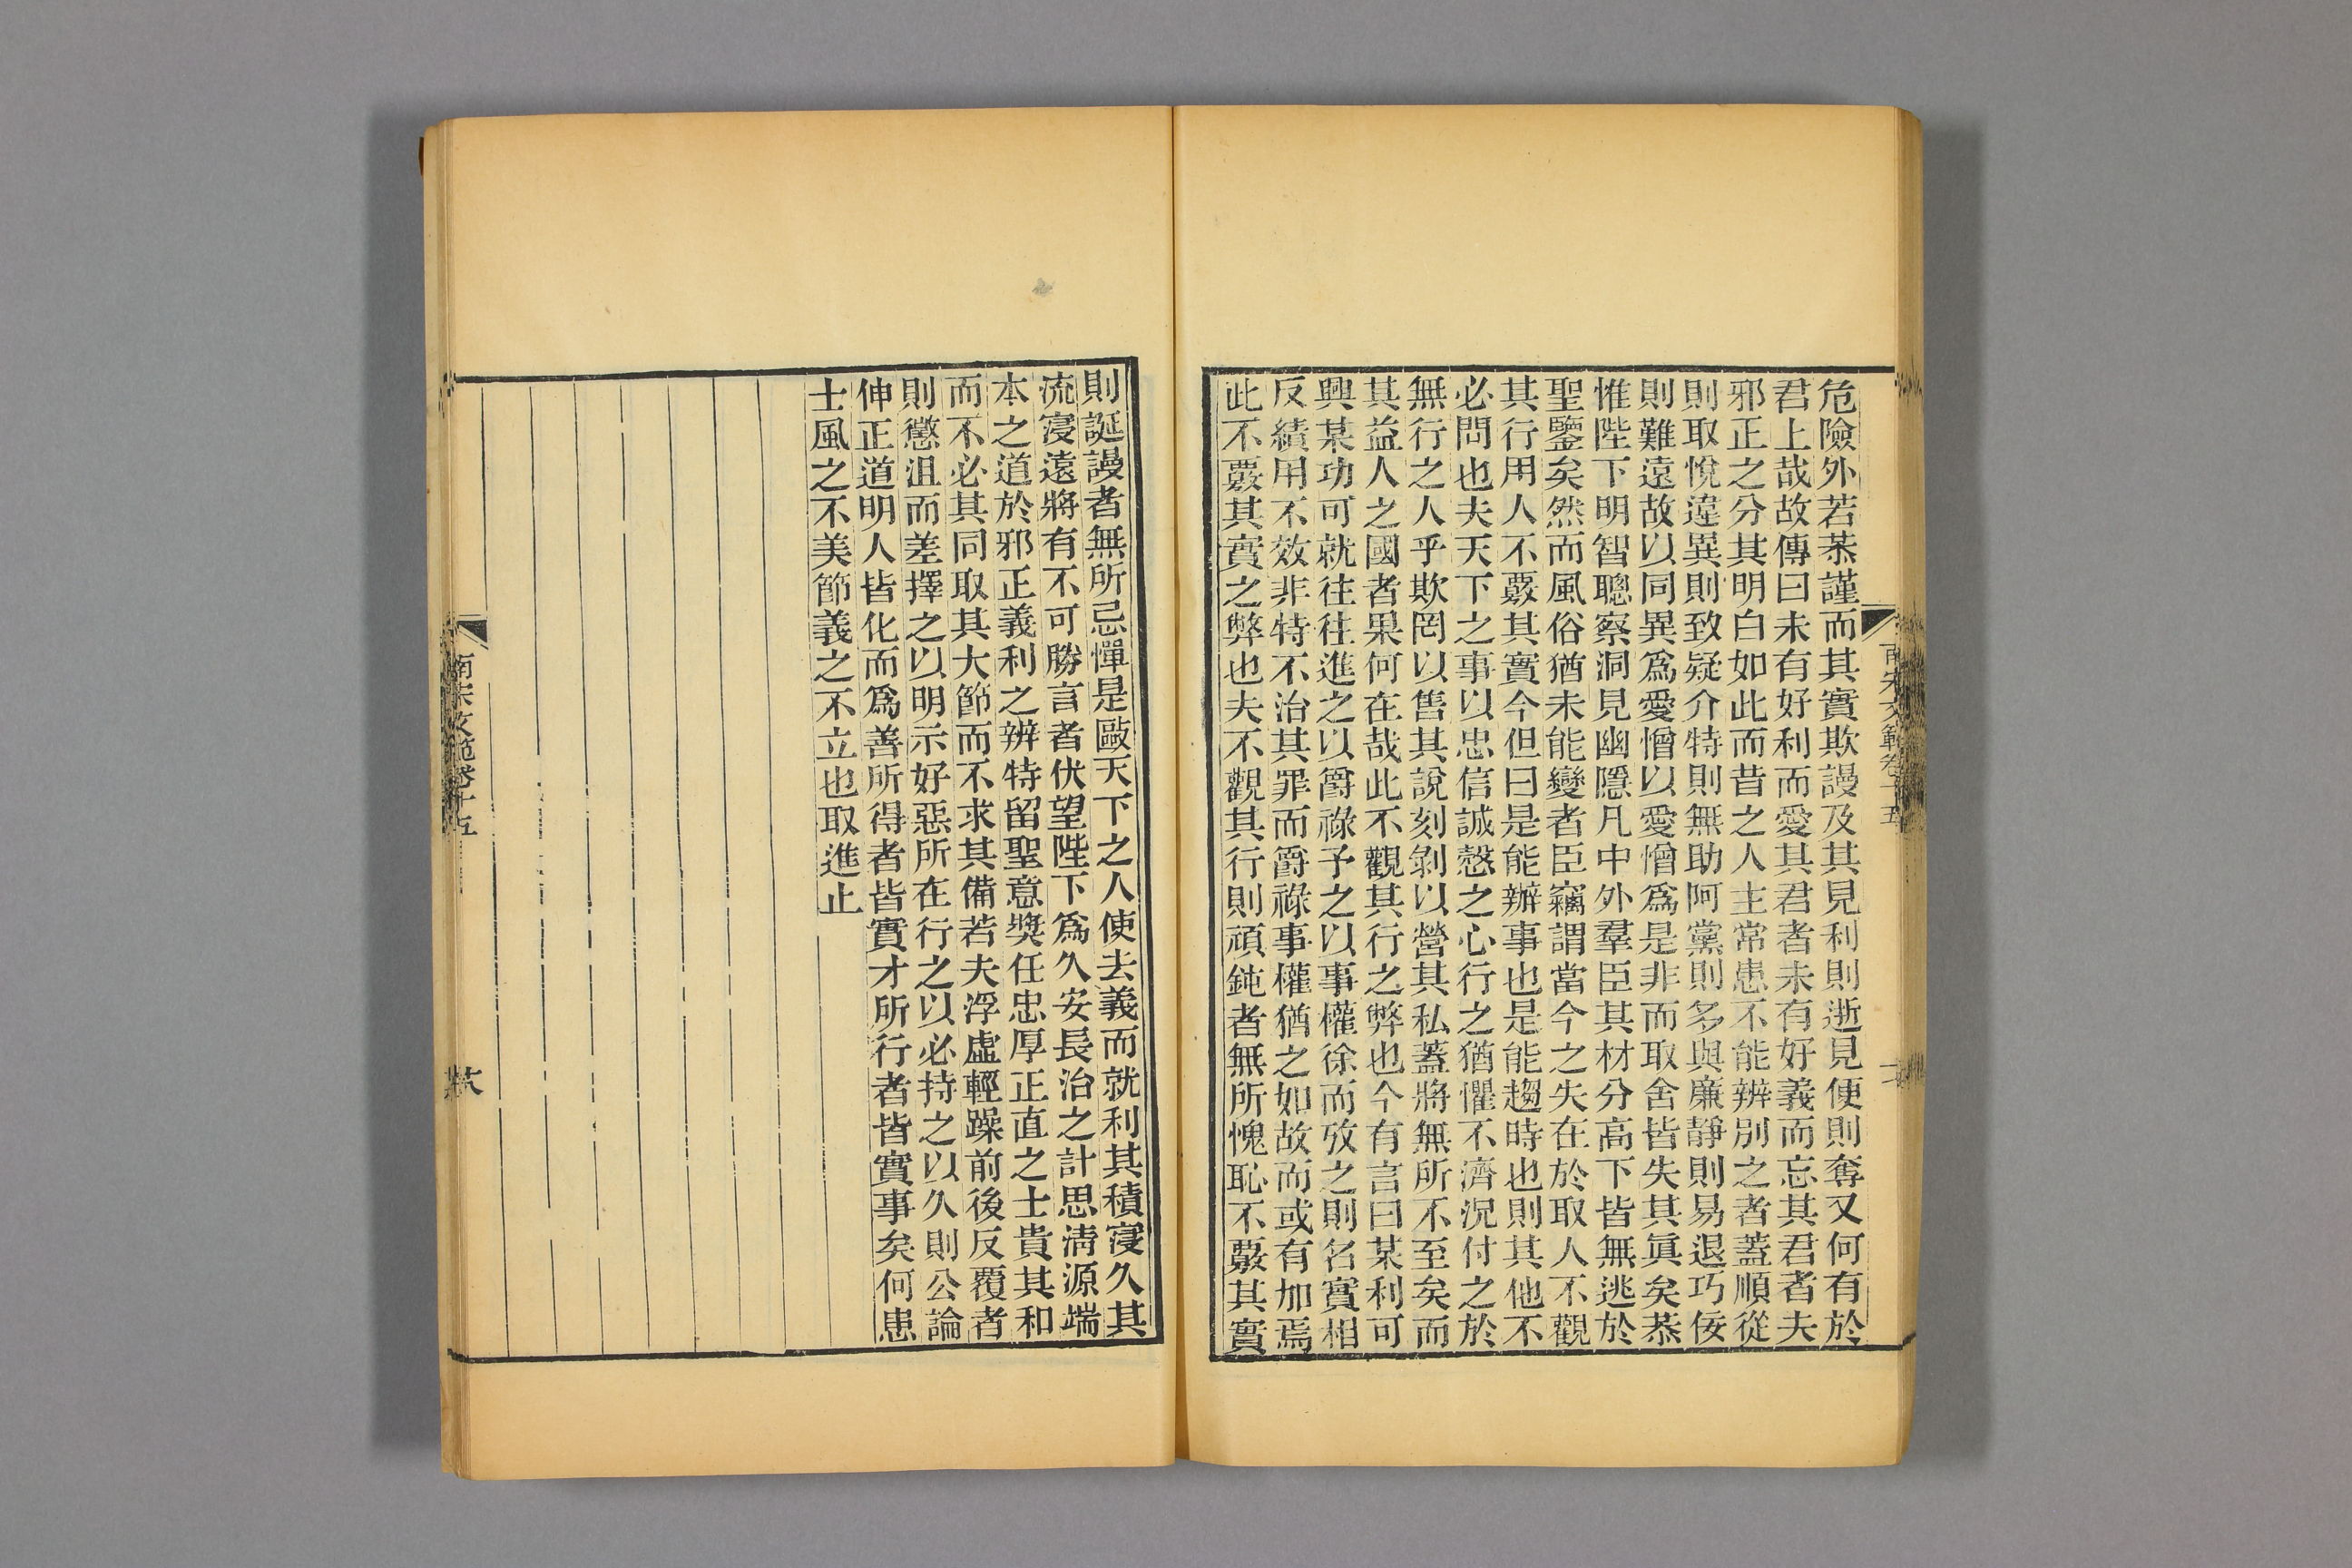 危險外若恭謹而其實欺謾及其見利則逝見便則奪又何有於
君上哉故傳曰未有好利而愛其君者未有好義而忘其君者夫
邪正之分其明白如此而昔之人主常患不能辨別之者蓋順從
則取悅違異則致疑介特則無助阿黨則多與廉靜則易退巧佞
則難遠故以同異爲愛憎以愛憎爲是非而取舍皆失其眞矣恭
惟陛下明智聰察洞見幽隱凡中外羣臣其材分高下皆無逃於
聖鑒矣然而風俗猶未能變者臣竊謂當今之失在於取人不觀
其行用人不覈其實今但曰是能辦事也是能趨時也則其他不
必問也夫天下之事以忠信誠愨之心行之猶懼不濟況付之於
無行之人乎欺罔以售其說刻剝以營其私蓋將無所不至矣而
其益人之國者果何在哉此不觀其行之弊也今有言曰某利可
興某功可就往往進之以爵祿予之以事權徐而攷之則名實相
反績用不效非特不治其罪而爵祿事權猶之如故而或有加焉
此不覈其實之弊也夫不觀其行則頑鈍者無所愧恥不覈其實
則誕謾者無所忌憚是敺天下之人使去義而就利其積寖久其
流寖遠將有不可勝言者伏望陛下爲久安長治之計思淸源端
本之道於邪正義利之辨特留聖意奬任忠厚正直之士貴其和
而不必其同取其大節而不求其備若夫浮虛輕躁前後反覆者
則懲沮而差擇之以明示好惡所在行之以必持之以久則公論
伸正道明人皆化而爲善所得者皆實才所行者皆實事矣何患
士風之不美節義之不立也取進止
南宋文範卷十五